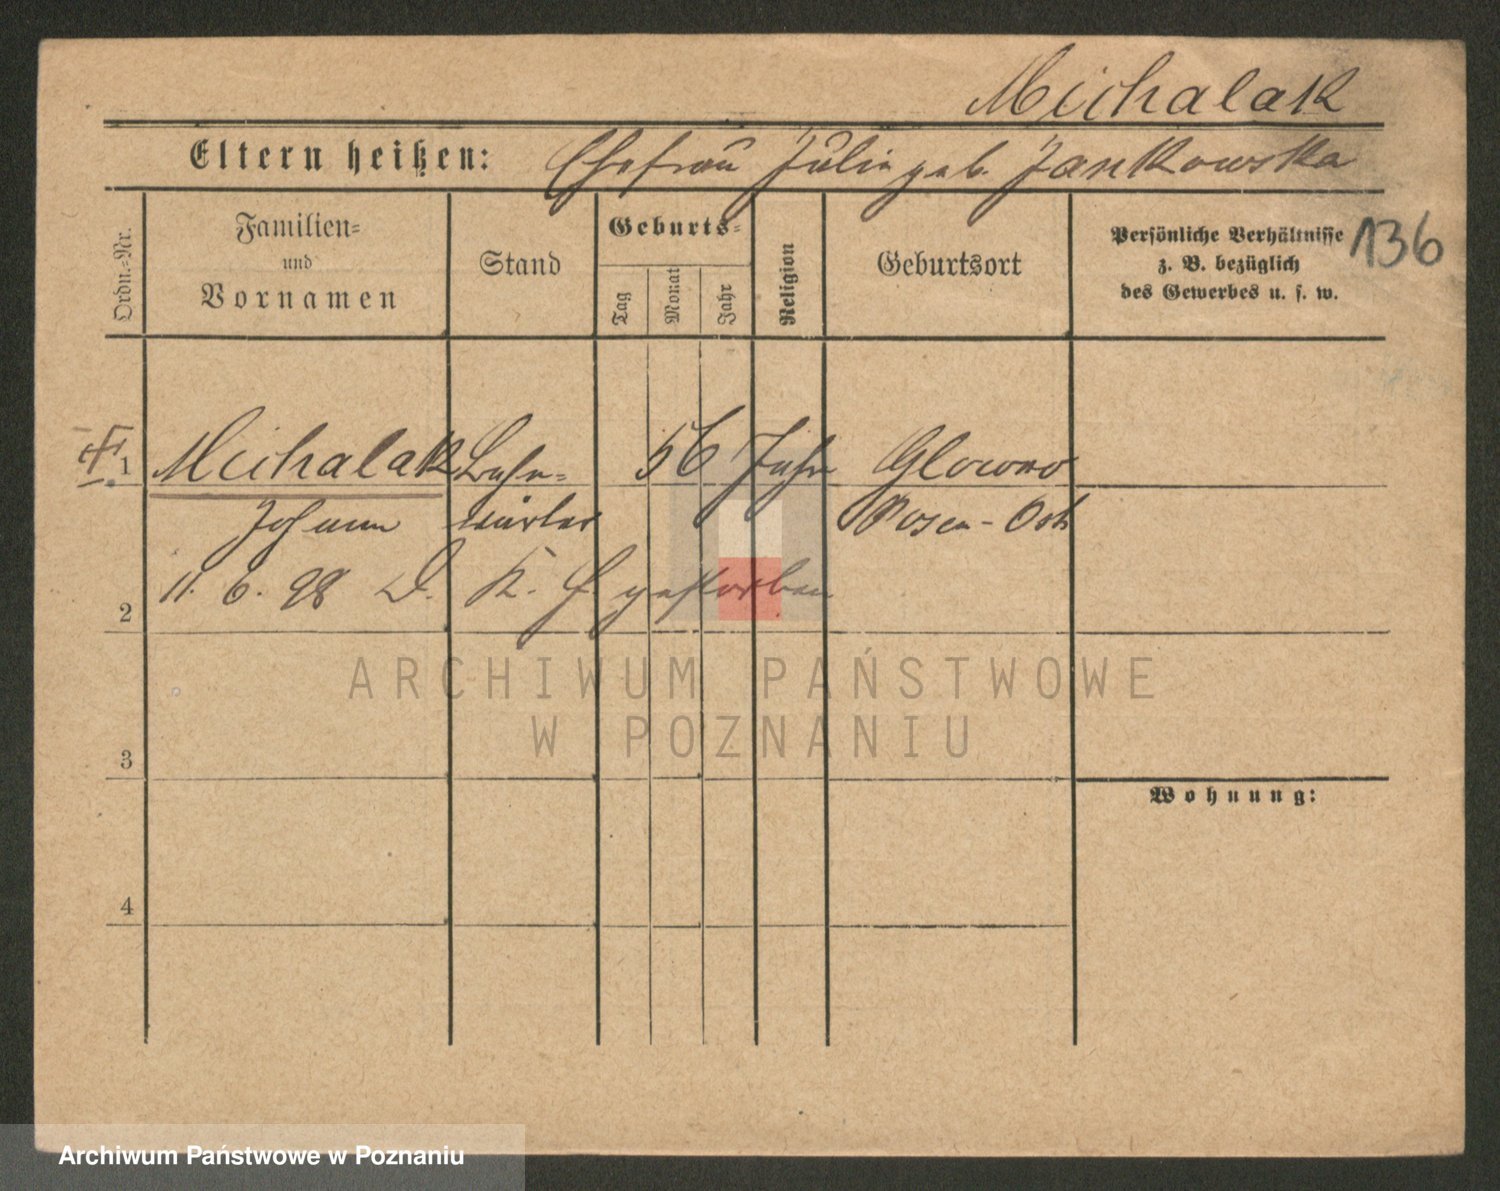 Michalak
Eltern heißen: Ehefrau Julie geb. Jankowska
Ordn.-Nr.
Familien-
und
Vornamen
Stand
Geburts-
Tag
Monat
Jahr
Religion
Geburtsort
Persönliche Verhältnisse
z. B. bezüglich
des Gewerbes u. s. w.
136
1 Michalak 56 Jahr Glowno
Johann wärter Posen-Ost
2 11. 6. 98 D. K. H gestorben
ARCHIWUM PAŃSTWOWE
W POZNANIU
3
Wohnung:
4
Archiwum Państwowe w Poznaniu